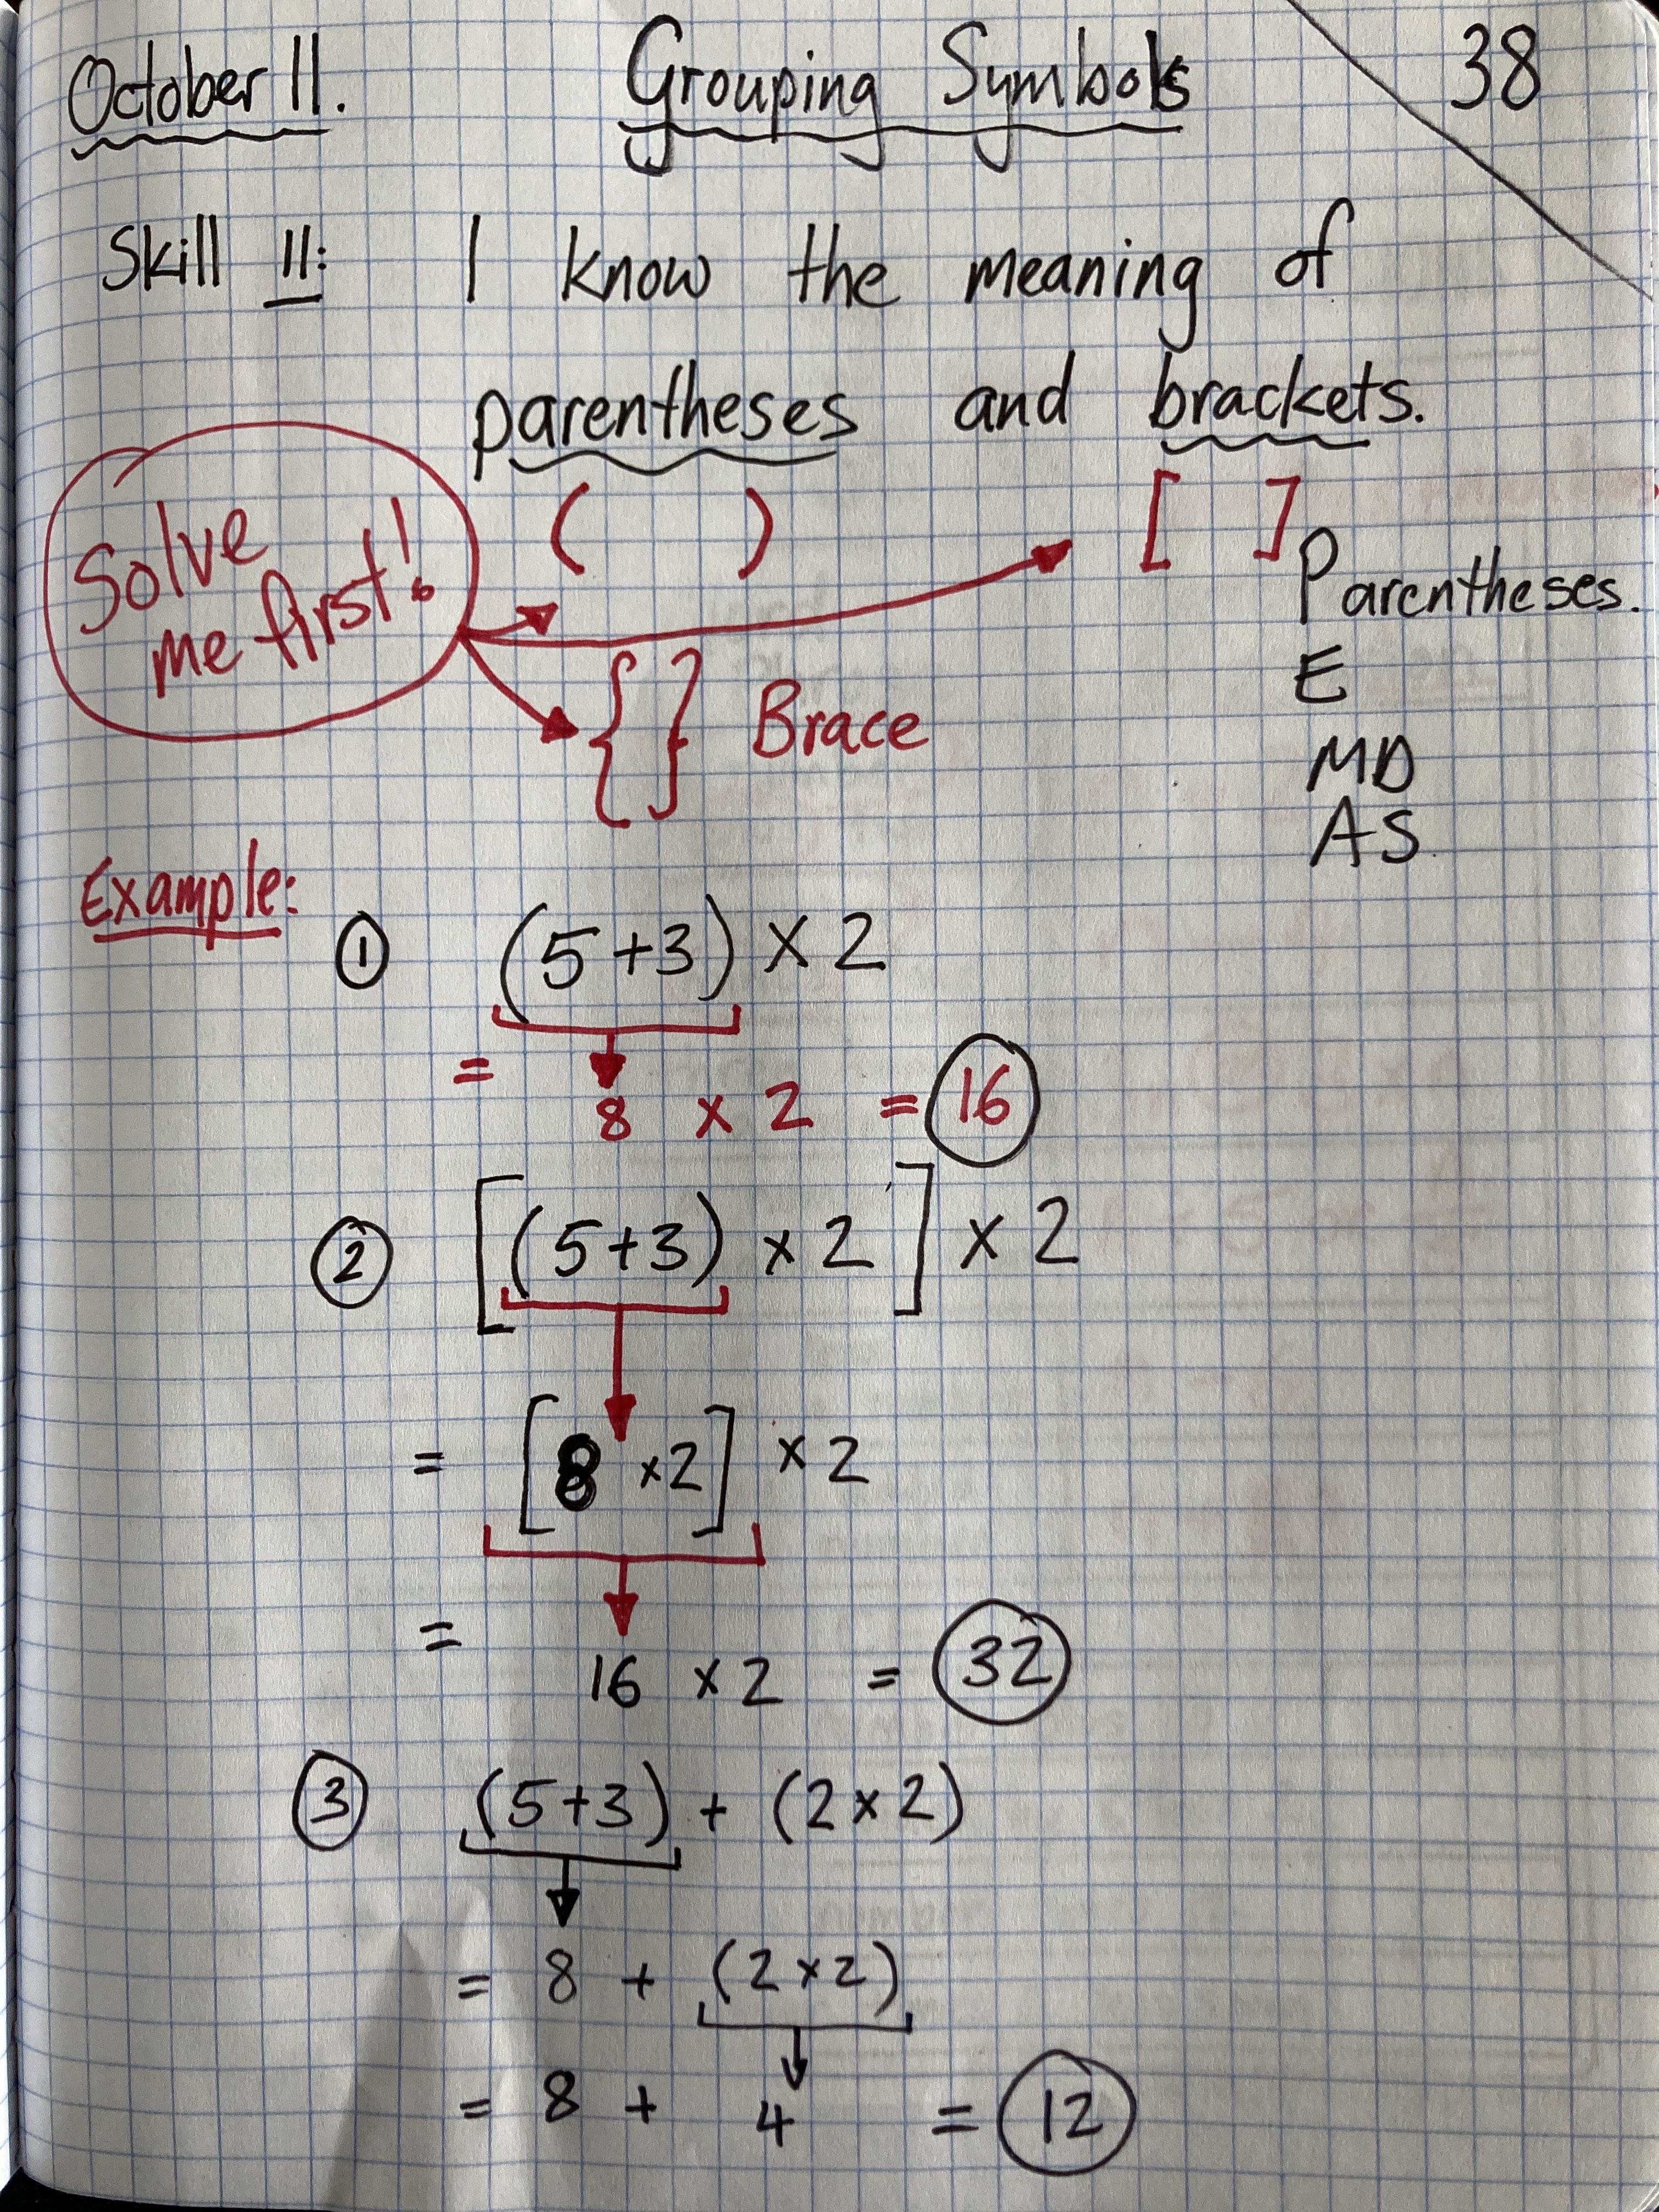 October 11. Grouping Symbols 38
Skill 11: I know the meaning of
parentheses and brackets.
( ) [ ]
Solve
me first!
{ } Brace
Parentheses.
E
MD
AS.
Example:
① (5+3) × 2
= 8 × 2 = 16
② [(5+3) × 2] × 2
= [8 × 2] × 2
= 16 × 2 = 32
③ (5+3) + (2×2)
= 8 + (2×2)
= 8 + 4 = 12